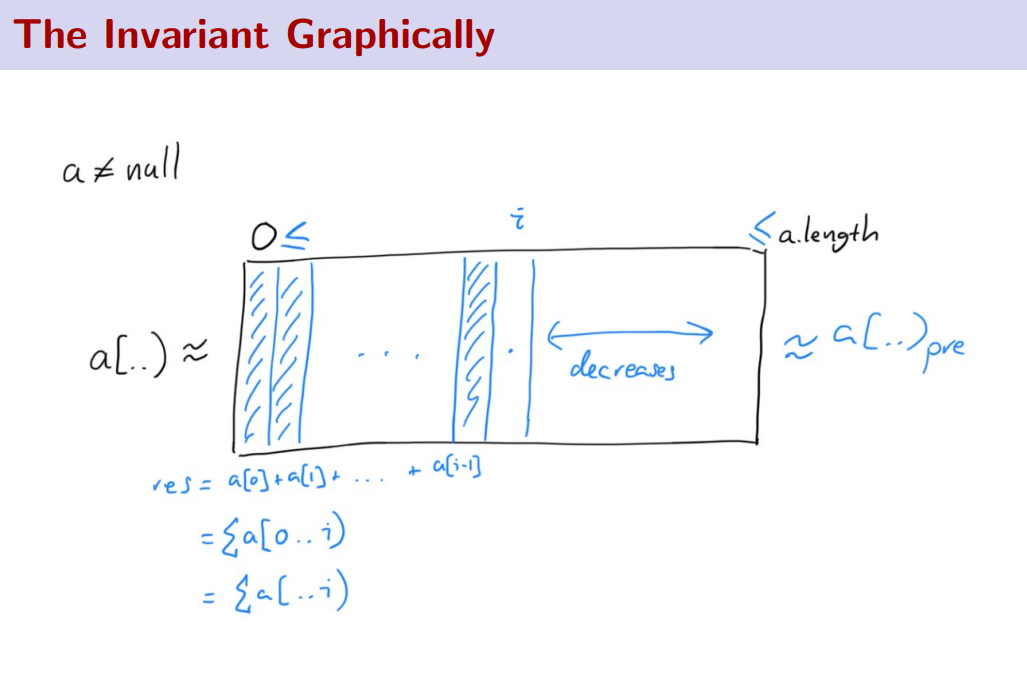 The Invariant Graphically
a ≠ null
0 ≤ i ≤ a.length
a[..) ≈ .... . decreases ≈ a[..)pre
res = a[0]+a[1]+ ... + a[i-1]
= Σa[0..i)
= Σa[..i)